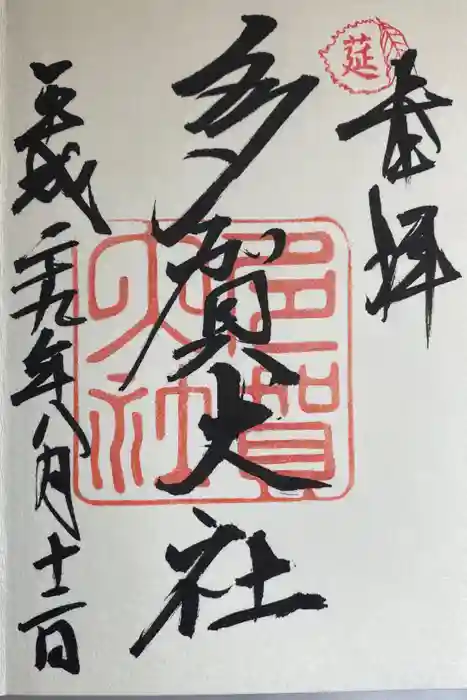 奉拝
莚
多賀大社
多賀大社
平成二十九年八月十二日